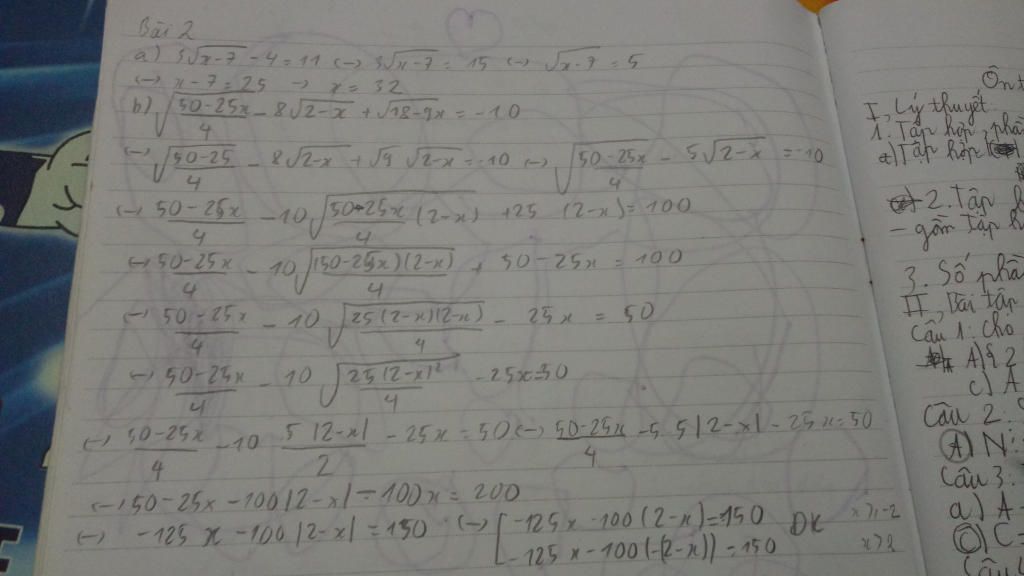 Bài 2
a) 3√(x-7) - 4 = 11 (→) 3√(x-7) = 15 (→) √(x-7) = 5
(→) x - 7 = 25 → x = 32
b) √((50-25x)/4) - 8√(2-x) + √(18-9x) = -10
(→) √((50-25)/4) - 8√(2-x) + √9 √(2-x) = -10 (→) √((50-25x)/4) - 5√(2-x) = -10
(→) (50-25x)/4 - 10√((50-25x)/4 (2-x)) + 25 (2-x) = 100
(→) (50-25x)/4 - 10√((50-25x)(2-x)/4) + 50 - 25x = 100
(→) (50-25x)/4 - 10√(25(2-x)(2-x)/4) - 25x = 50
(→) (50-25x)/4 - 10√(25(2-x)²/4) - 25x = 50
(→) (50-25x)/4 - 10 5|2-x|/2 - 25x = 50 (→) (50-25x)/4 - 5.5|2-x| - 25x = 50
(→) 50 - 25x - 100|2-x| - 100x = 200
(→) -125x - 100|2-x| = 150 (→) [ -125x - 100(2-x) = 150 ĐK x ≥ -2
-125x - 100(-(2-x)) = 150 x ≥ 2
Ôn t
I, Lý thuyết
1. Tập hợp, phần
a) Tập hợp
2. Tập h
- gồm tập h
3. Số phầ
II, Bài tập
Câu 1: Cho
A) { 2
C) A
Câu 2:
A) N
Câu 3:
a) A
C) C =
Câu 4